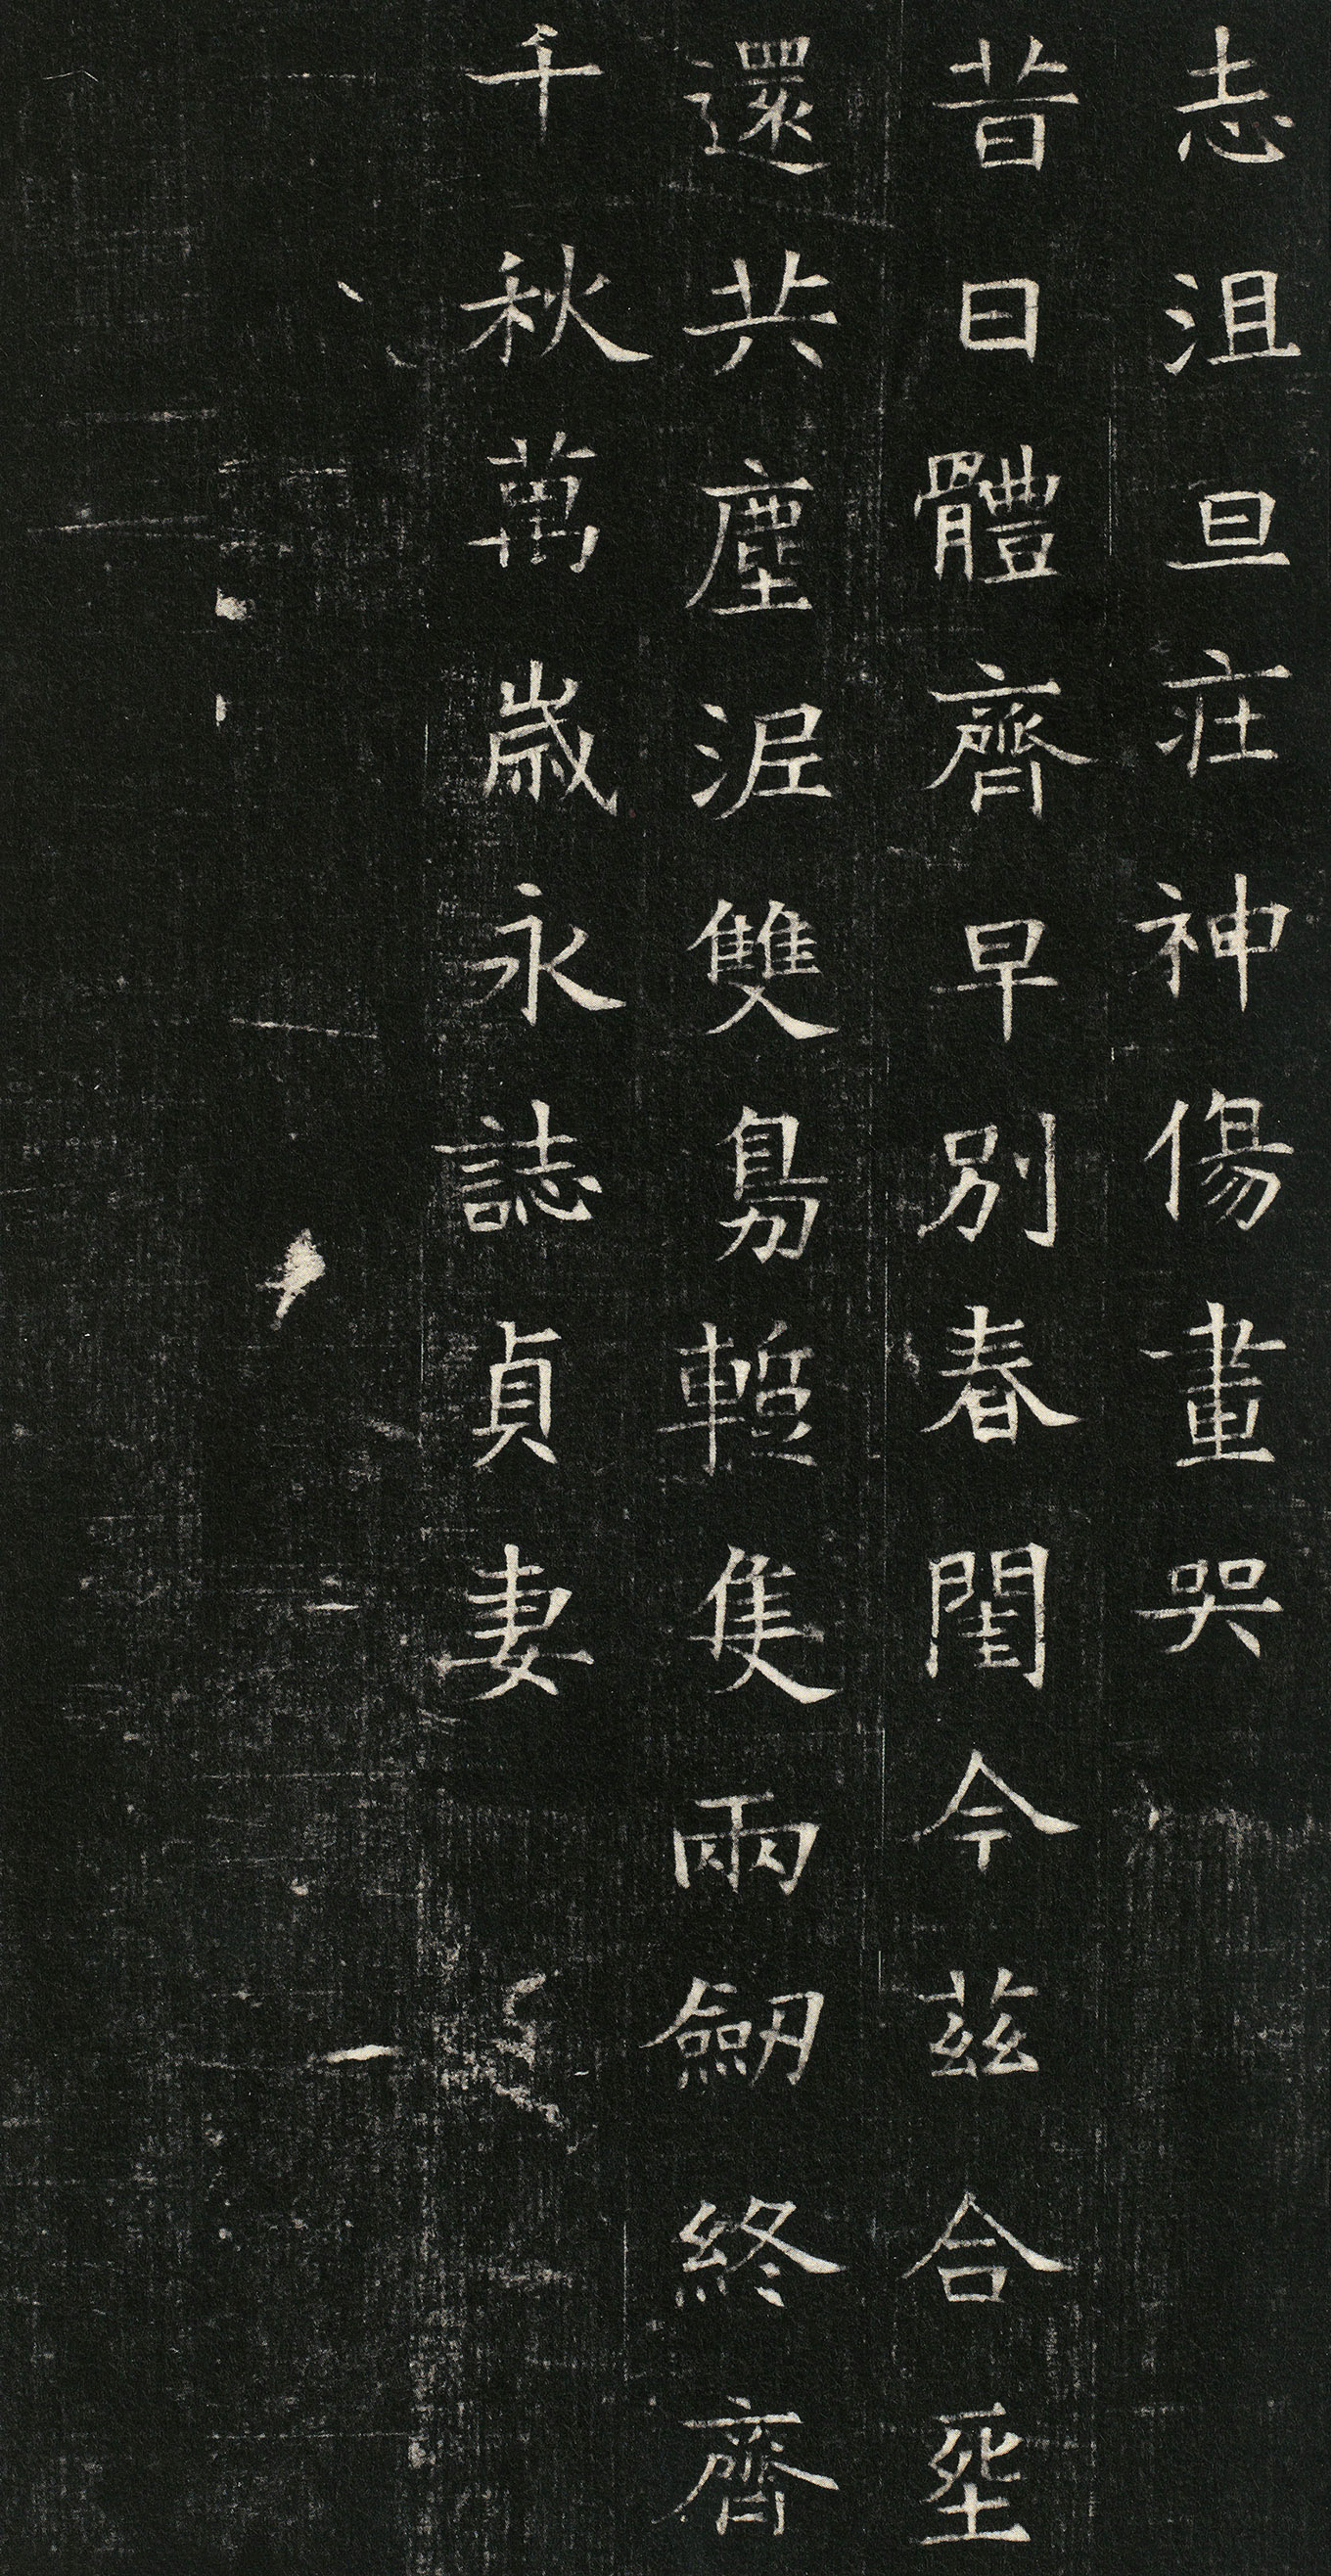 志沮旦疰神傷晝哭
昔日體齊早別春閨今茲合垩
還共塵泥雙鳧蹔隻兩劒終齊
千秋萬歲永誌貞妻